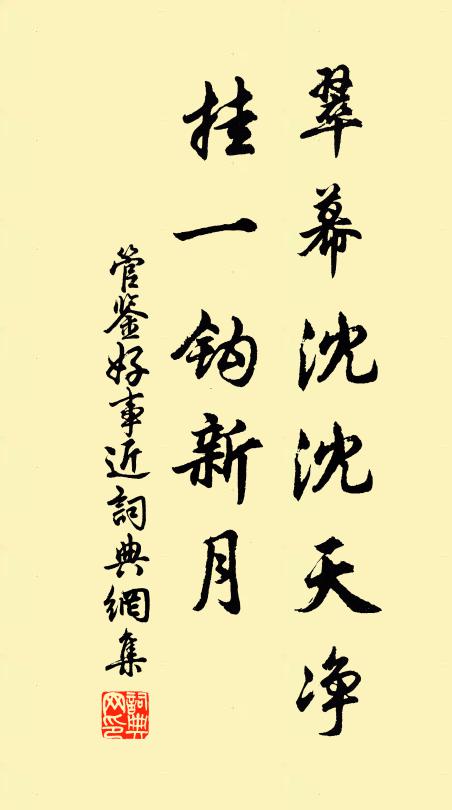 翠幕沈沈天净
挂一鈎新月
管鉴好事近詞典網集
詞典
网印